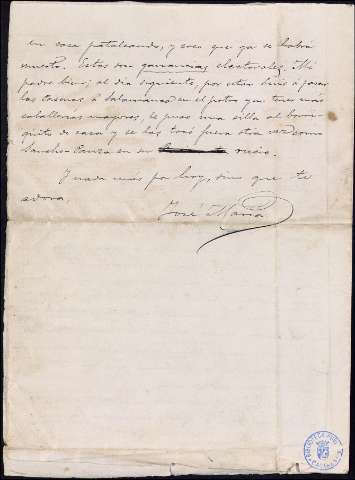 en casa pataleando, y creo que ya se habrá
muerto. Estas son ganancias electorales. Mi
padre bien; al día siguiente, por
las Eseras, á Salamanca en el potro que tenía más
caballerías mayores, le puso una silla al borri-
quito de casa y se las tocó fuera otra vez como
Sancho Panza en su rucio.
Y nada más por hoy, sino que te
adora
José María
BIBLIOTECA